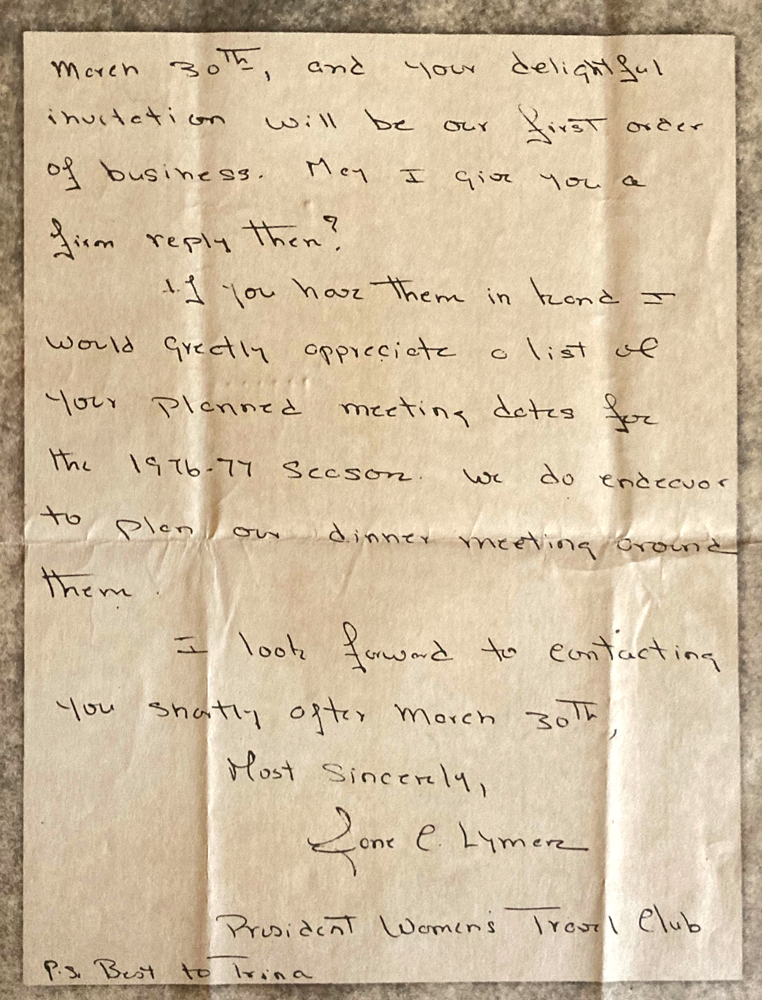 March 30TH, and your delightful
invitation will be our first order
of business. May I give you a
firm reply then?
If you have them in hand I
would greatly appreciate a list of
your planned meeting dates for
the 1976-77 season. We do endeavor
to plan our dinner meeting around
them.
I look forward to contacting
you shortly after March 30TH,
Most Sincerely,
Jane C. Lymer
President Women's Travel Club
P.S. Best to Trina